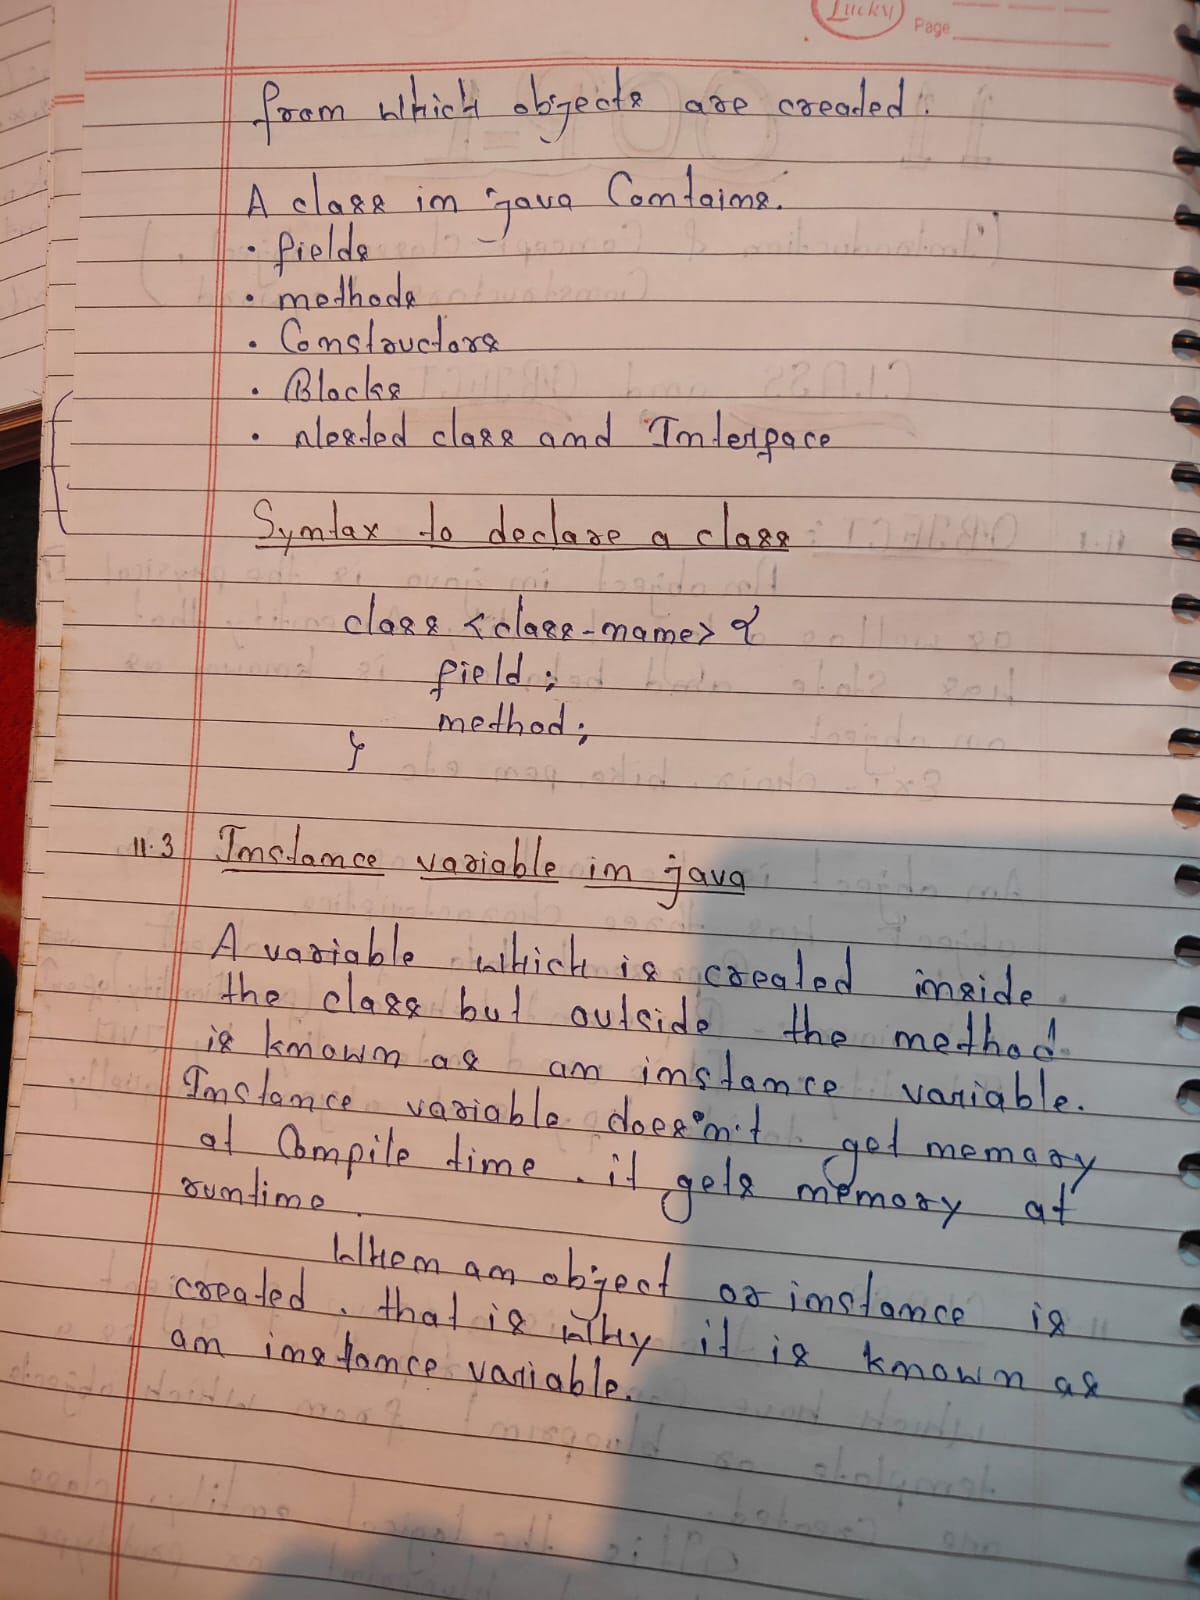 Lucky
Page
from which objects are created.
A class in java Contains.
• fields
• methods
• Constructors
• Blocks
• Nested class and Interface
Syntax to declare a class
class <class-name> {
field;
method;
}
11.3 Instance variable in java
A variable which is created inside
the class but outside the method
is known as an instance variable.
Instance variable doesn't get memory
at Compile time. it gets memory at
runtime.
When an object or instance is
created. that is why it is known as
an instance variable.